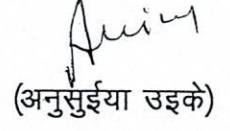 (अनुसुईया उइके)